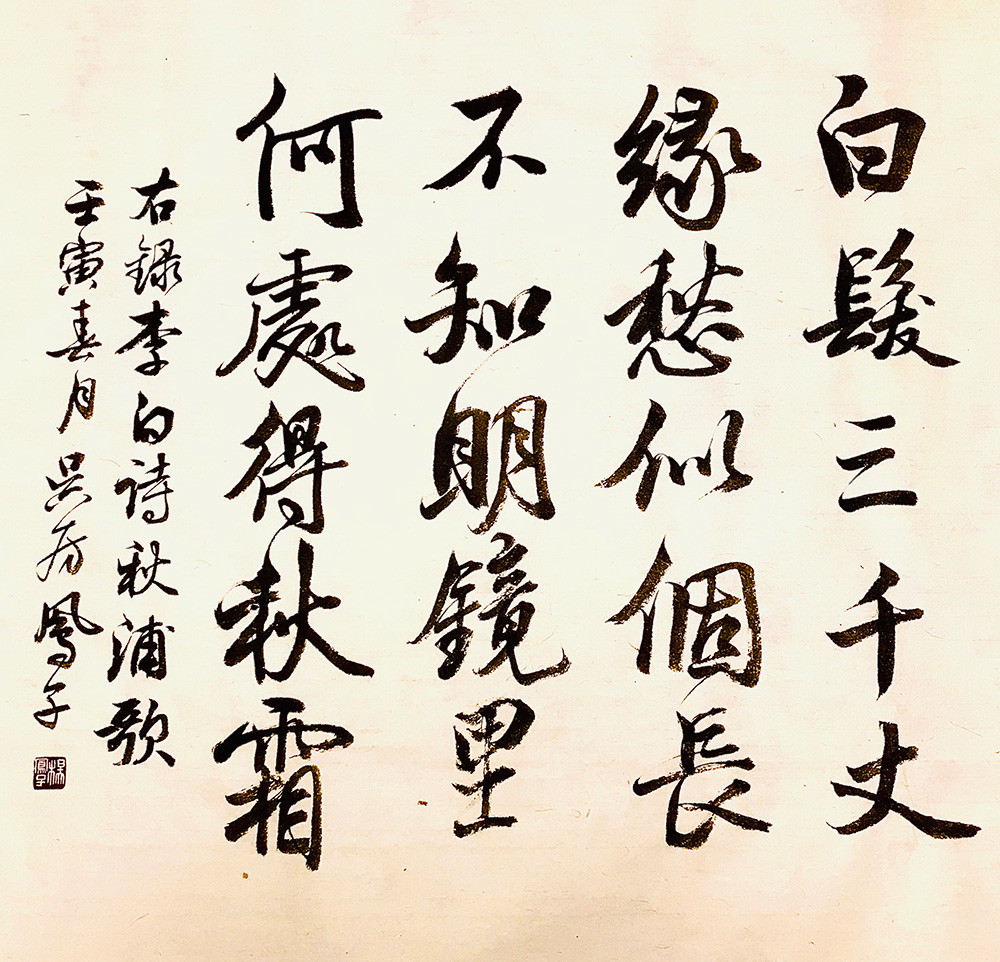 白髮三千丈
緣愁似個長
不知明鏡里
何處得秋霜
右録李白詩秋浦歌
壬寅春月吳房鳳子